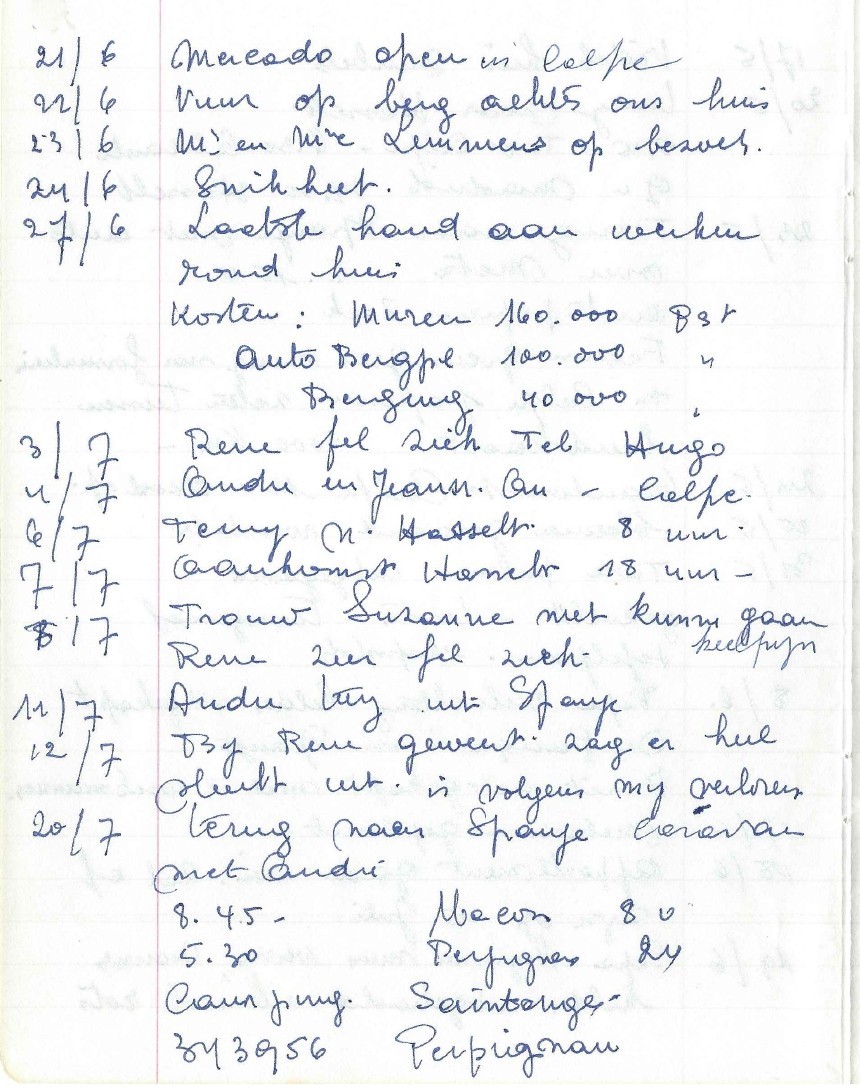 21/6 Mercado open in Calpe
22/6 Vuur op berg achter ons huis
23/6 Mr en Mme Lemmens op bezoek.
24/6 Snikheet.
27/6 Laatste hand aan werken
rond huis
Kosten : Muren 160.000 Pst
Auto Bergpl 100.000 "
Berging 40000 "
3/7 Rene fel ziek Tel. Hugo
4/7 Andre en Jeann. Aan - Calpe.
6/7 Terug n. Hasselt. 8 uur.
7/7 Aankomst Hasselt 18 uur -
8/7 Trouw Suzanne niet kunnen gaan
keelpijn
Rene zeer fel ziek.
11/7 Andre terug uit Spanje
12/7 By Rene geweest. zag er heel
slecht uit. is volgens my verloren
20/7 terug naar Spanje Caravan
met André
8.45 - Macon 8 u
5.30 Perpignan 24
Camping. Saintonges -
343956 Perpignan